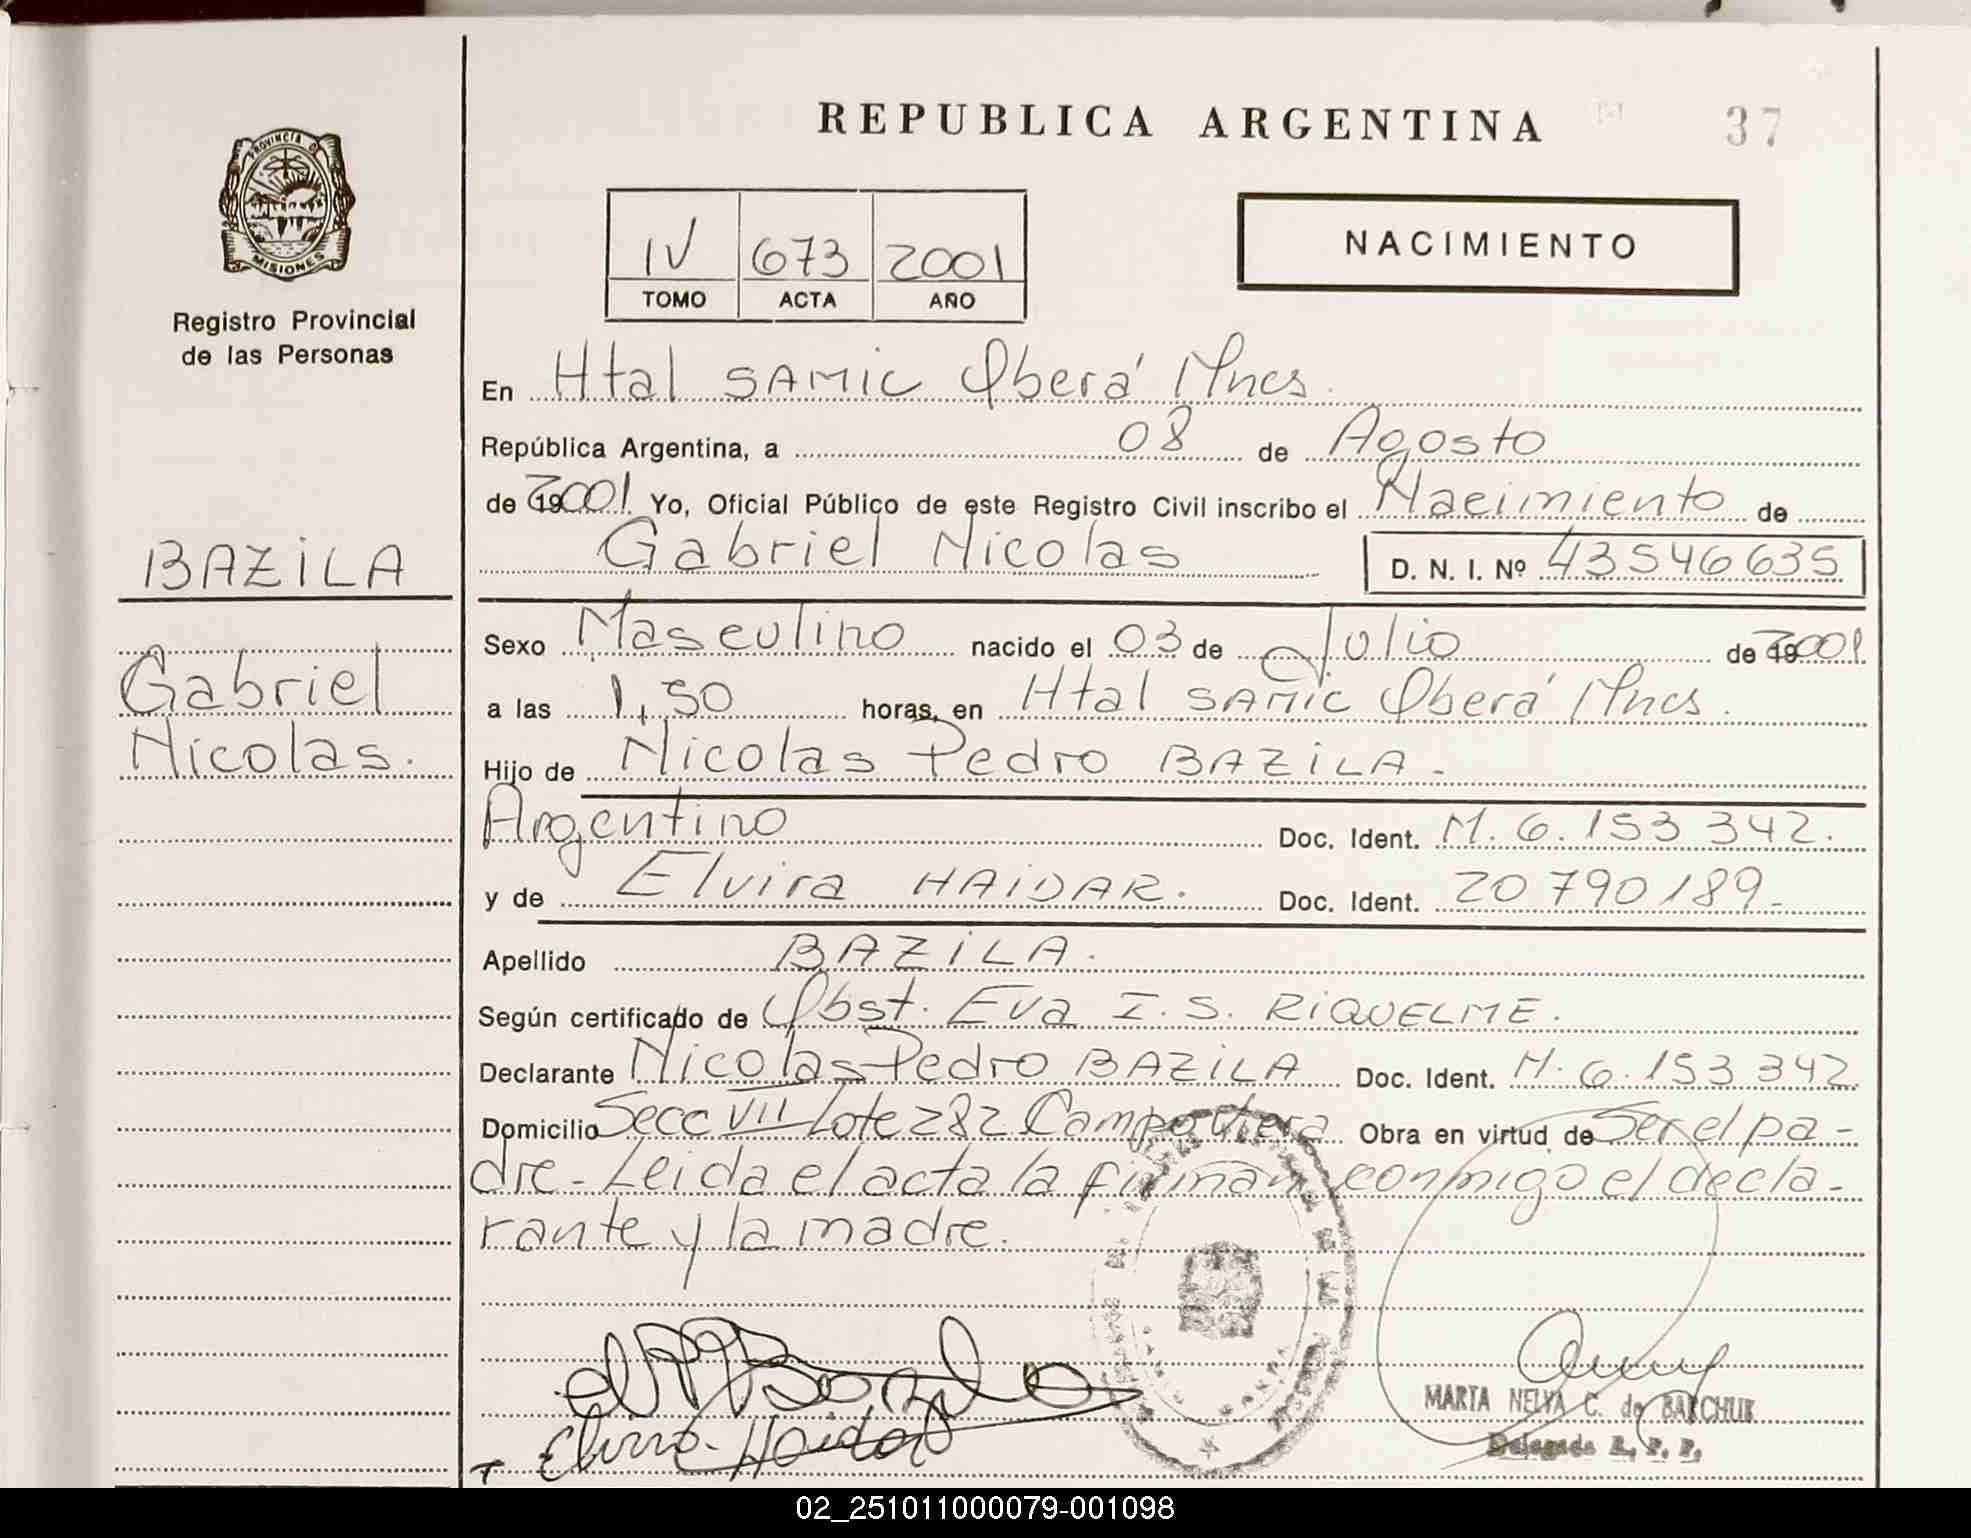 REPUBLICA ARGENTINA
37
PROVINCIA DE
MISIONES
Registro Provincial
de las Personas
IV 673 2001
TOMO ACTA AÑO
NACIMIENTO
En Htal SAMIC Oberá Mnes.
República Argentina, a 08 de Agosto
de 2001 Yo, Oficial Público de este Registro Civil inscribo el Nacimiento de
Gabriel Nicolas D. N. I. Nº 43546635
BAZILA
Gabriel
Nicolas.
Sexo Masculino nacido el 03 de Julio de 2001
a las 1,50 horas, en Htal SAMIC Oberá Mnes.
Hijo de Nicolas Pedro BAZILA.
Argentino Doc. Ident. M. 6.153 342.
y de Elvira HAIDAR. Doc. Ident. 20 790 189.
Apellido BAZILA.
Según certificado de Obst. Eva I. S. RIQUELME.
Declarante Nicolas Pedro BAZILA Doc. Ident. M. 6.153 342
Domicilio Secc VII Lote 282 Campo Viera Obra en virtud de Ser el pa-
dre. Leida el acta la firman conmigo el decla-
rante y la madre.
Elvira Haidar
MARTA NELYA C. de BARCHUK
Delegada R. P. P.
02_251011000079-001098